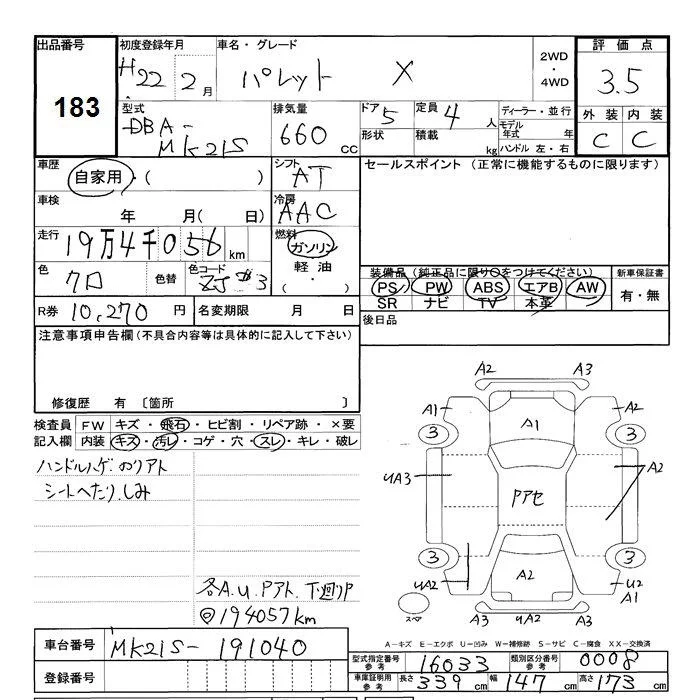 出品番号
183
初度登録年月
H22 2月
車名・グレード
パレット X
2WD
・
4WD
評価点
3.5
外装 内装
C C
型式
DBA-
MK21S
排気量
660 cc
ドア 5
定員 4 人
形状
積載 kg
ディーラー・並行
モデル
年式 年
ハンドル 左・右
車歴
自家用・( )
シフト
AT
セールスポイント (正常に機能するものに限ります)
車検
年 月( 日)
冷房
AAC
走行
19万4千056 km
燃料
ガソリン
軽油
( ・ )
色
クロ
色替
色コード
ZJ 3
装備品 (純正品に限り○をつけてください)
PS PW ABS エアB AW
SR ナビ TV 本革
新車保証書
有・無
R券 10,270 円
名変期限 月 日
後日品
注意事項申告欄(不具合内容等は具体的に記入して下さい)
修復歴 有 〔箇所 〕
検査員
記入欄
FW キズ・飛石・ヒビ割・リペア跡・×要
内装 キズ・汚レ・コゲ・穴・スレ・キレ・破レ
ハンドルハゲ のリアト
シートへたり.しみ
各A.U.Pアト.下廻りP
◎194057km
A2 A3
A1 A2
A1
3 3
UA3 A2
Pアセ
3 3
UA2 A2 U2
A1
スペア
A3 UA2 A3
A-キズ E-エクボ U-凹み W-補修跡 S-サビ C-腐食 XX-交換済
車台番号 MK21S-191040
登録番号
型式指定番号
参考
16033
類別区分番号
参考
0008
車庫証明用
参考
長さ 339 cm 幅 147 cm 高さ 173 cm